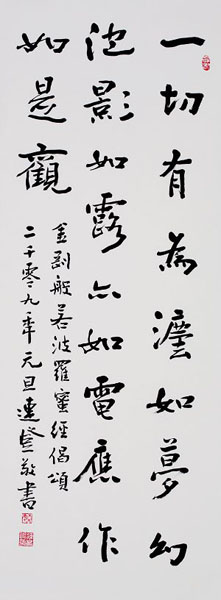 一切有為灋如夢幻
泡影如露亦如電應作
如是觀
金剛般若波羅蜜經偈頌
二千零九年元旦連登敬書